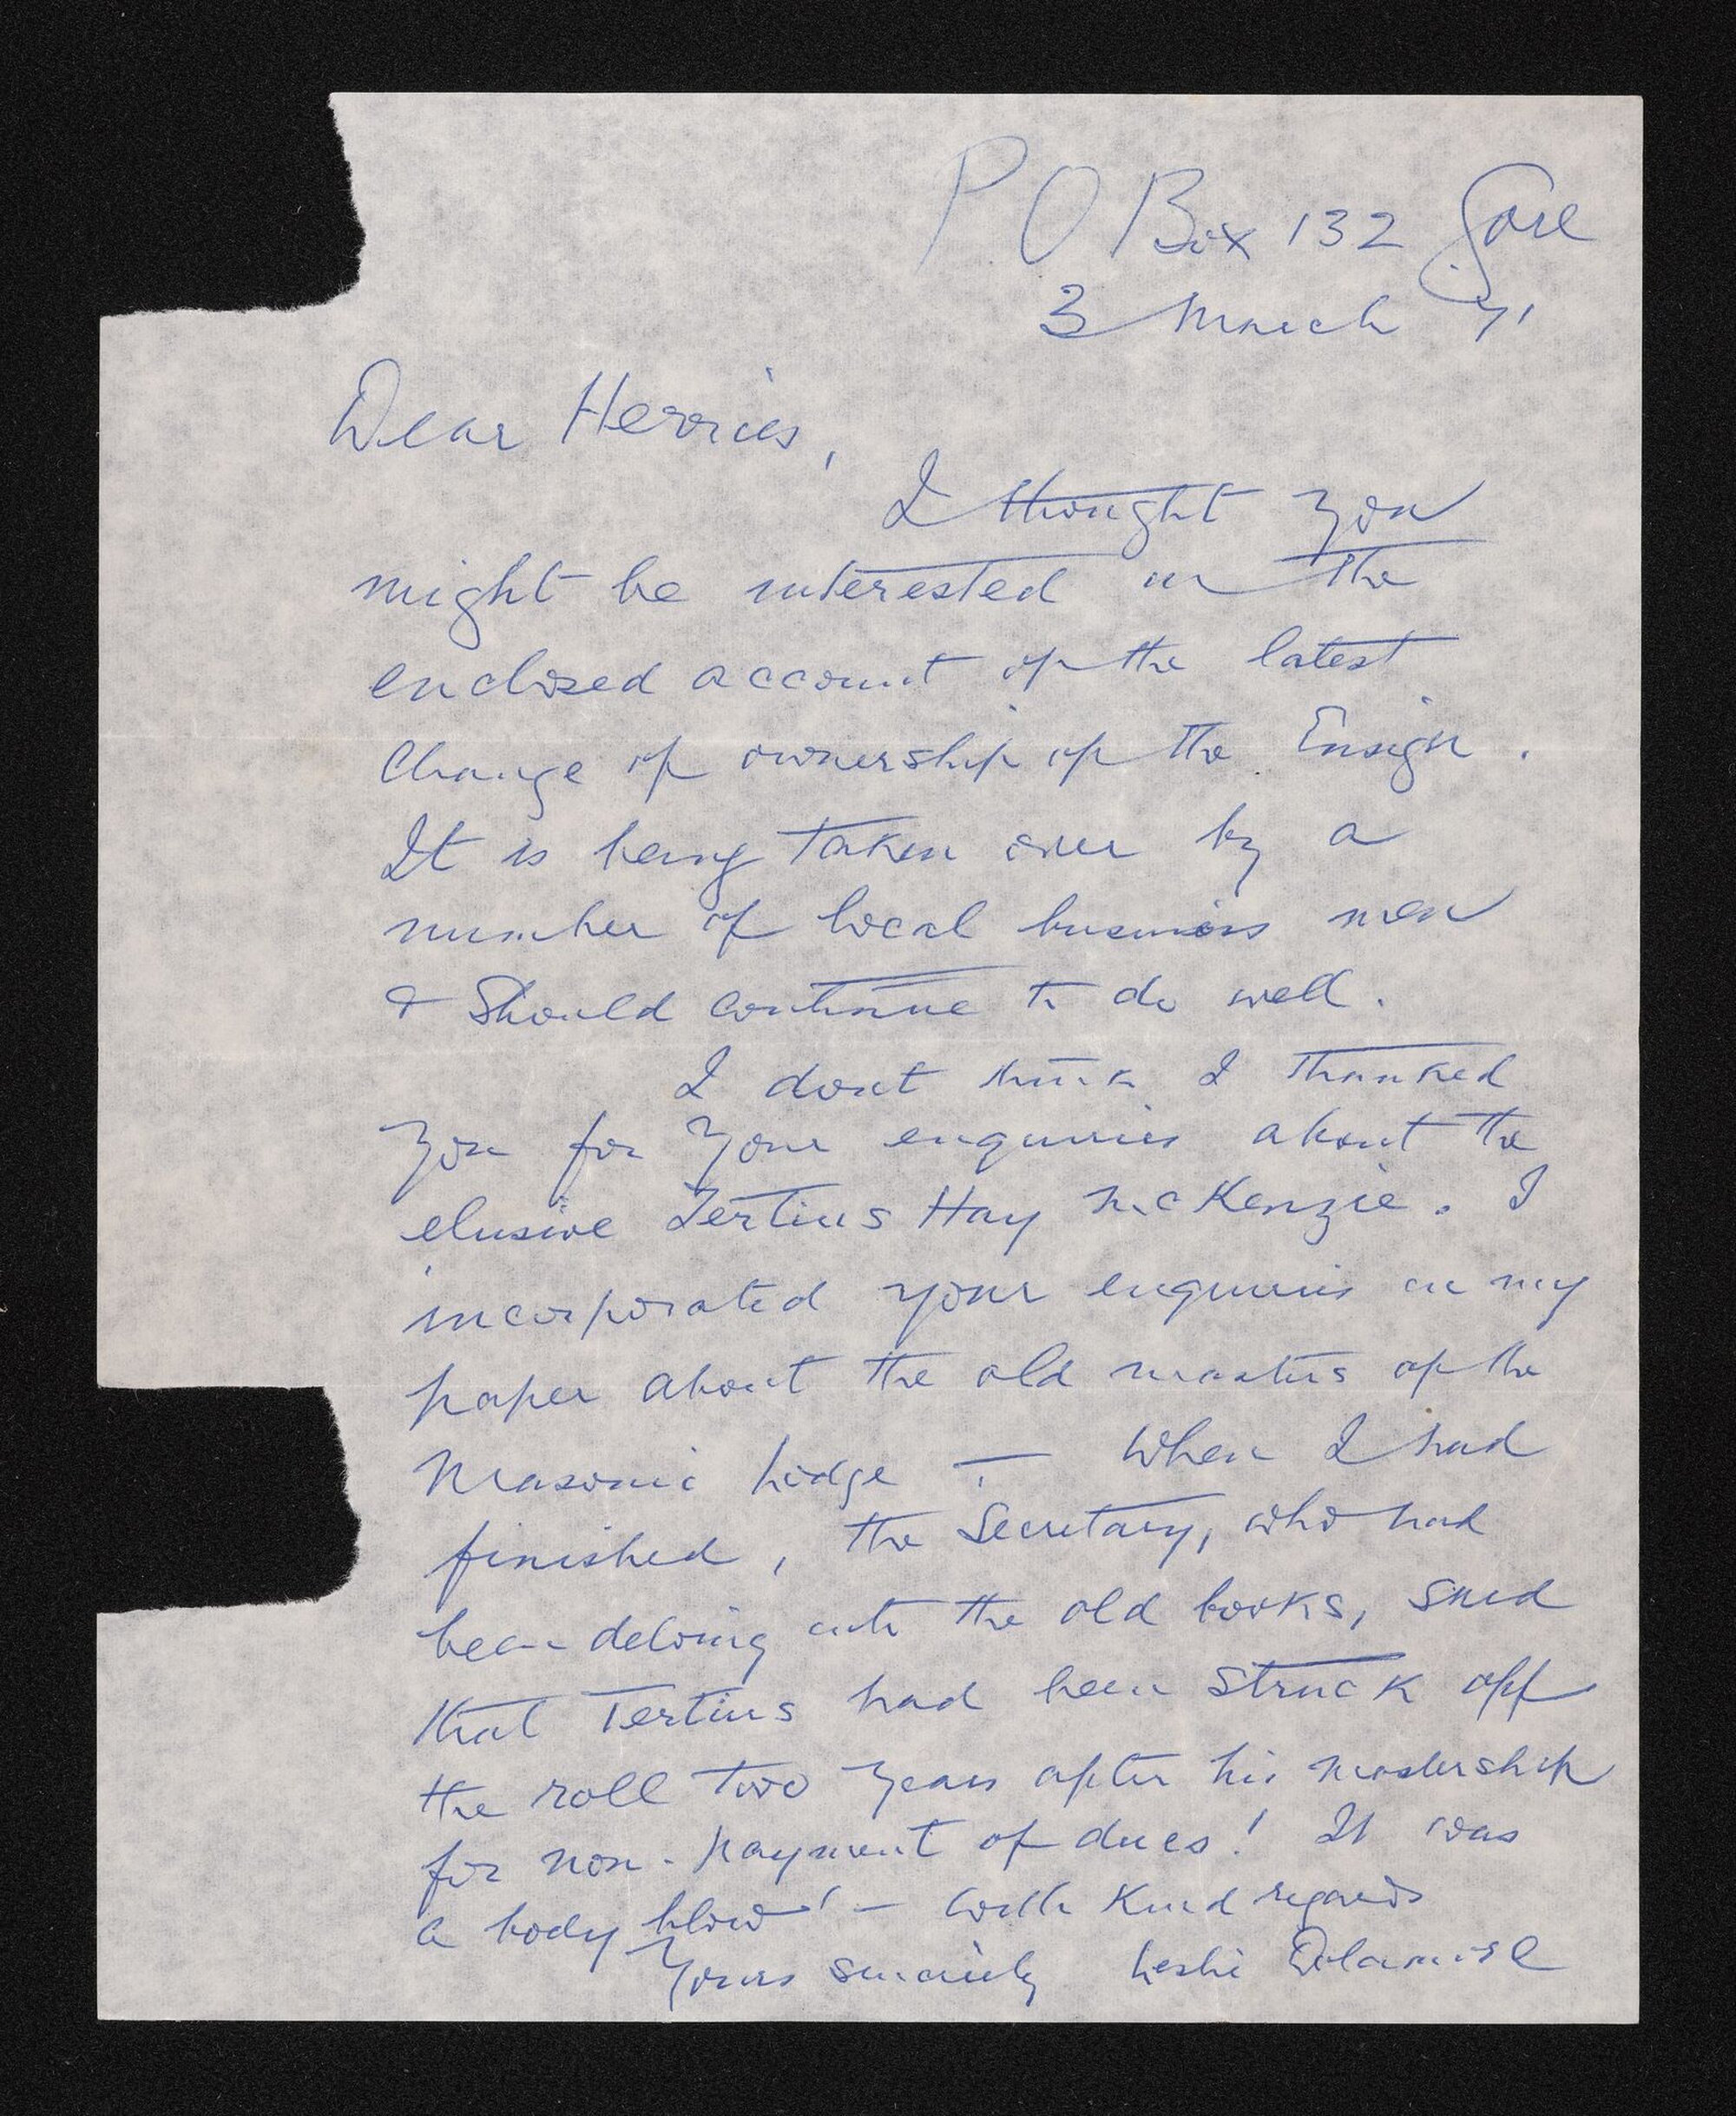 P O Box 132 Gore
3 March 71
Dear Herries,
I thought you
might be interested in the
enclosed account of the latest
change of ownership of the Ensign.
It is being taken over by a
number of local business men
& should continue to do well.
I dont think I thanked
you for your enquiries about the
elusive Tertius Hay McKenzie. I
incorporated your enquiries in my
paper about the old masters of the
Masonic Lodge — When I had
finished, the Secretary, who had
been delving into the old books, said
that Tertius had been struck off
the roll two years after his mastership
for non-payment of dues! It was
a body blow! — With Kind regards
Yours sincerely Leslie